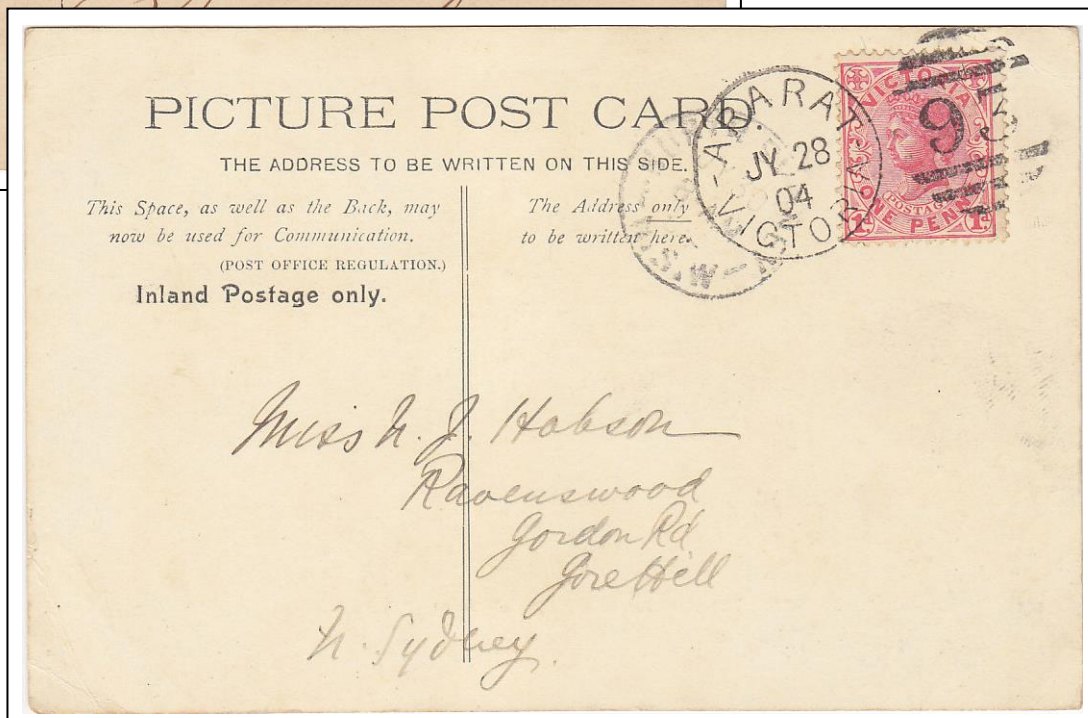 PICTURE POST CARD.
THE ADDRESS TO BE WRITTEN ON THIS SIDE.
This Space, as well as the Back, may
now be used for Communication.
(POST OFFICE REGULATION.)
Inland Postage only.
The Address only
to be written here.
ARARAT
JY 28
04
VICTORIA
VICTORIA
POSTAGE
ONE PENNY
1D
1D
9
N.S.W
Miss N. J. Hobson
Ravenswood
Gordon Rd
Gore Hill
N. Sydney.